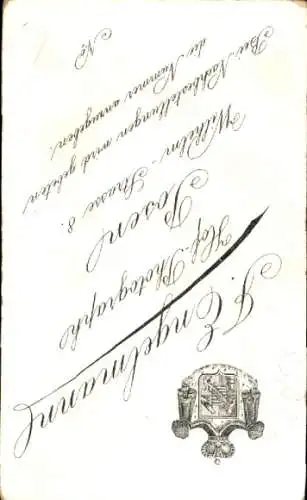 F. Engelmann
Hof-Photograph
Posen
Wilhelm-Strasse 8.
Bei Nachbestellungen wird gebeten
die Nummer anzugeben.
No